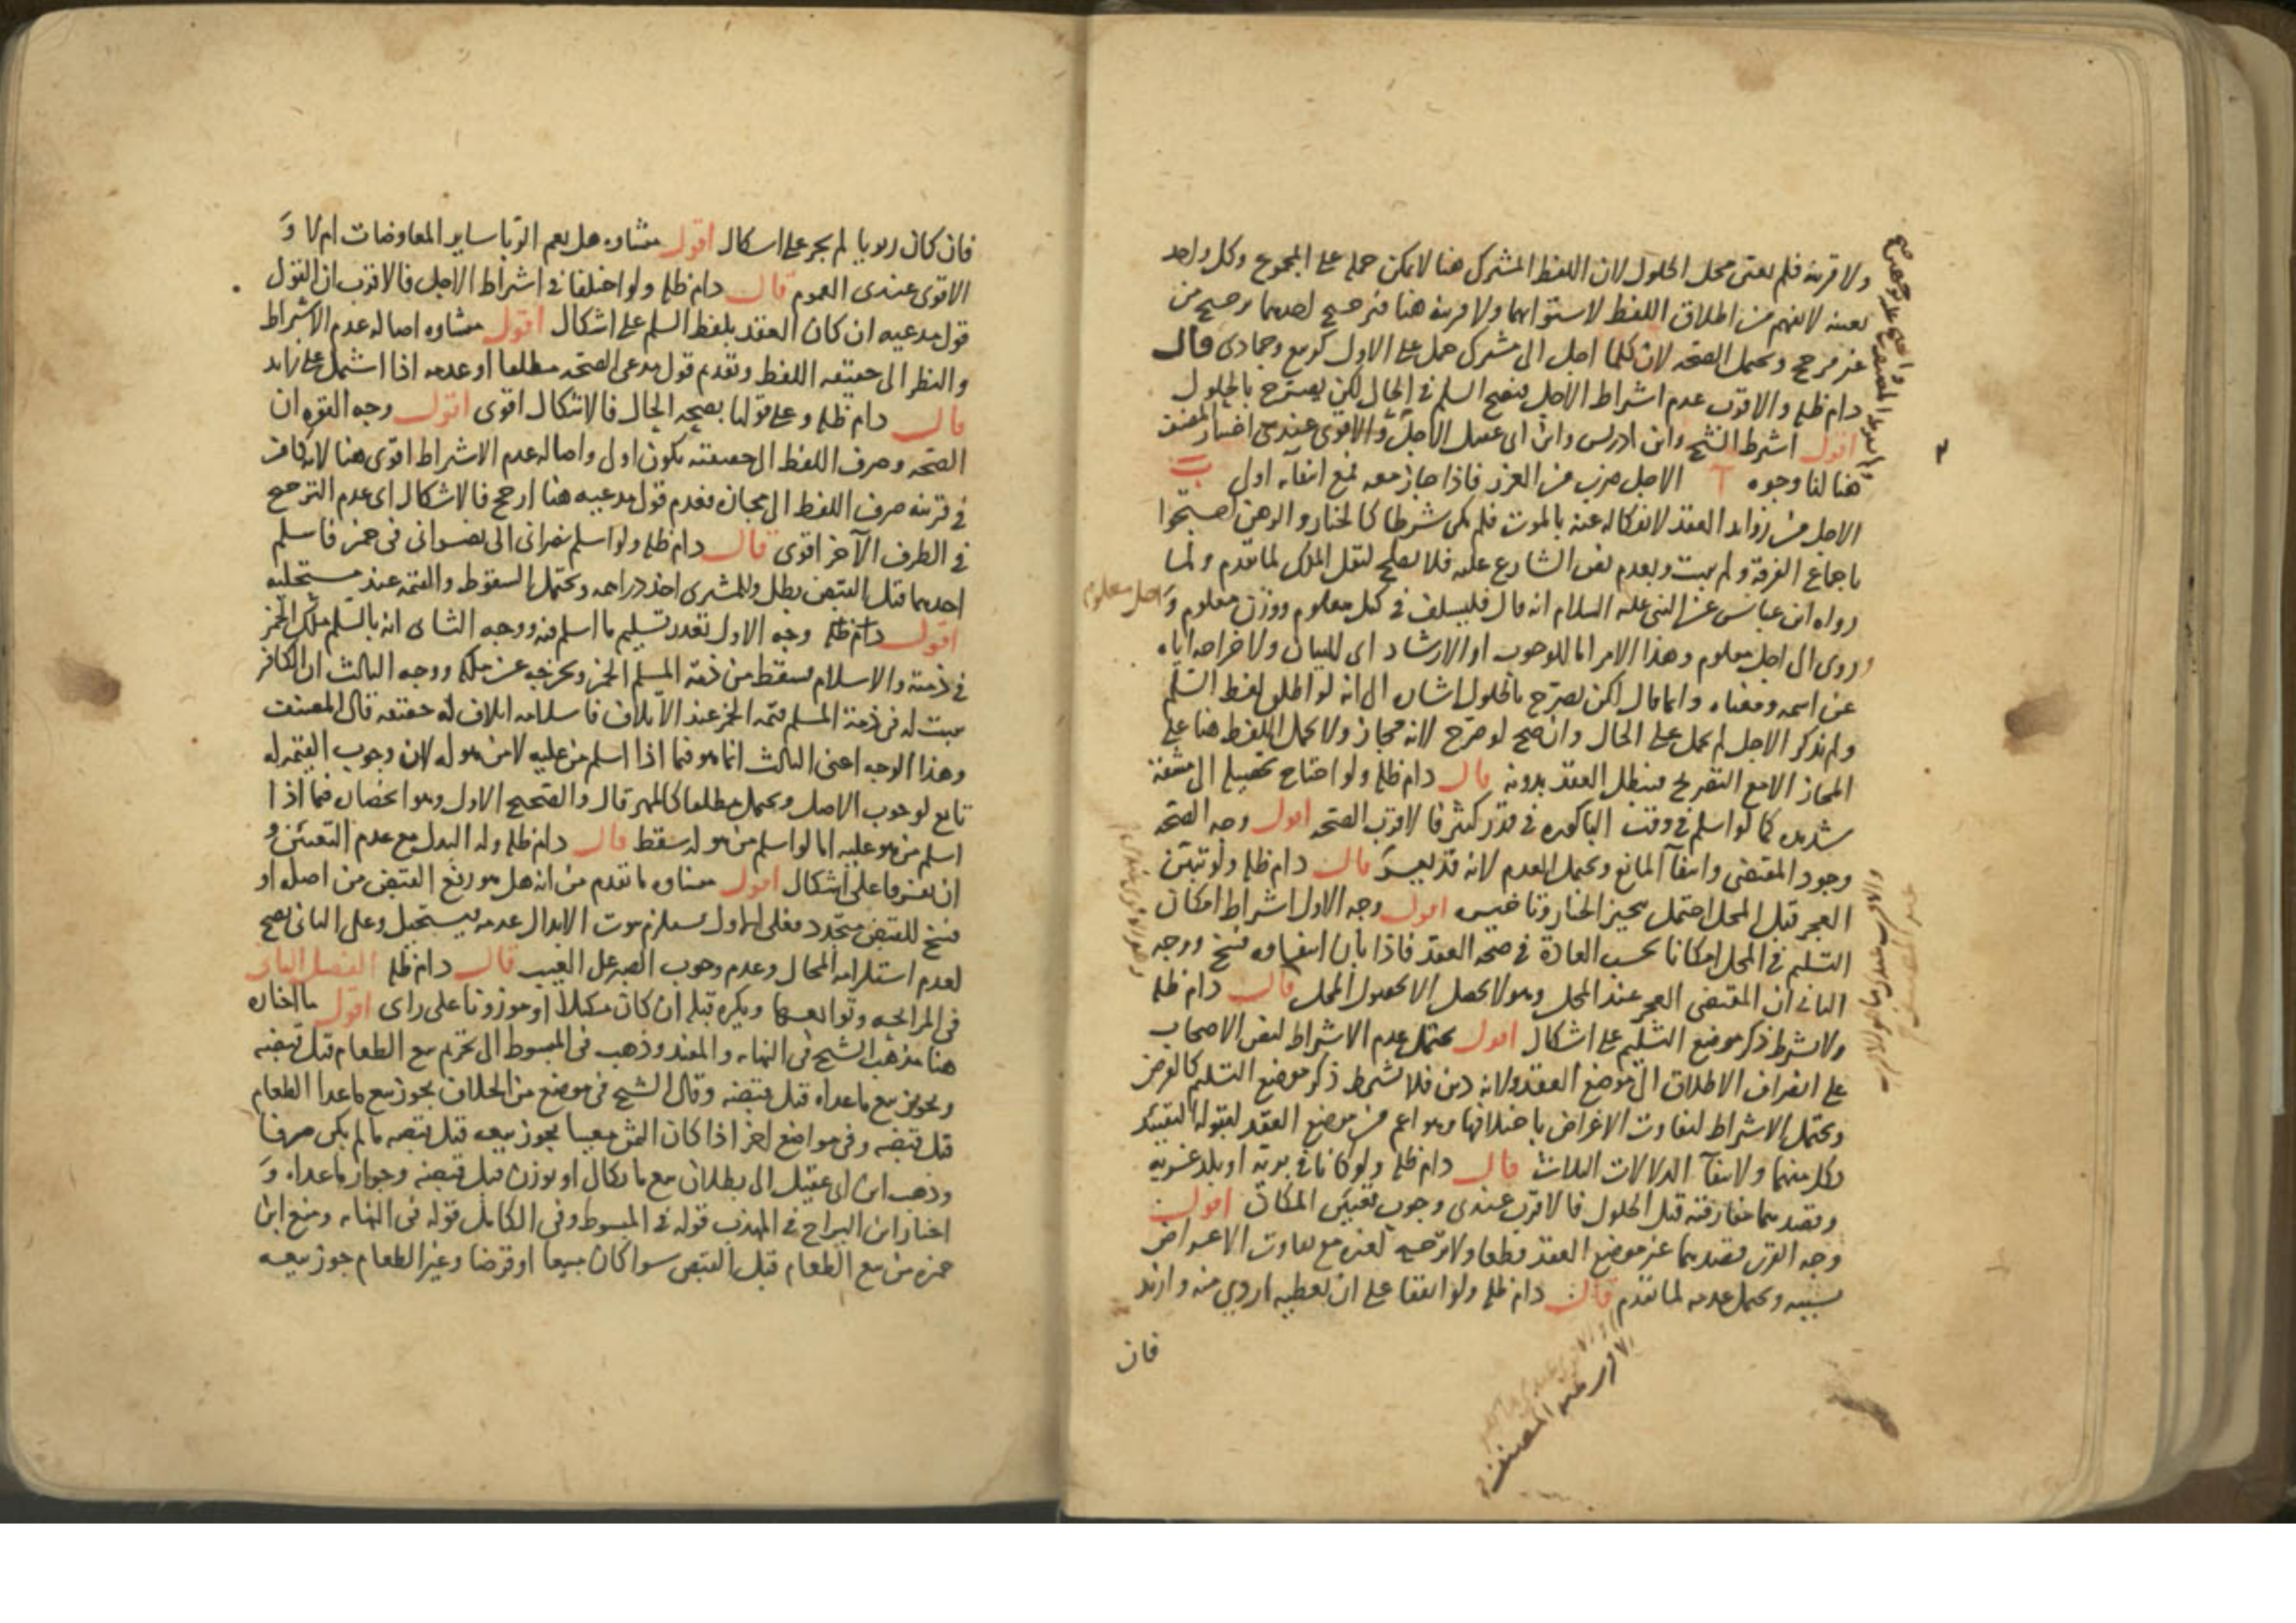 ولا قرينة فلم يعين محل الحلول لان اللفظ المشترك هنا لا يمكن حمله على المجموع وكل واحد
بعينه لا يفهم من اطلاق اللفظ لاستوائهما ولا قرينة هنا فترجيح احدهما ترجيح من
غير مرجح ويحتمل الصحة لان كلما اجل الى مشترك حمل على الاول كربيع وجمادى قال
دام ظله والاقرب عدم اشتراط الاجل فيصح السلم في الحال لكن يصرح بالحلول
اقول اشترط الشيخ وابن ادريس وابن ابي عقيل الاجل والاقوى عندي اختيار المصنف
هنا لنا وجوه ا الاجل ضرب من الغرر فاذا جاز معه فمع انتفائه اولى ب
الاجل من زوايد العقد لانفكاكه عنه بالموت فلم يكن شرطا كالخيار والرهن احتجوا
باجماع الفرقة ولم يثبت وبعدم نص الشارع عليه فلا يصلح لنقل الملك لما تقدم ولما
رواه ابن عباس عن النبي عليه السلام انه قال فليسلف في كيل معلوم ووزن معلوم و اجل معلوم
وروى الى اجل معلوم وهذا الامر اما للوجوب او الارشاد اي للبيان ولاخراجه اياه
عن اسمه ومعناه وانما قال لكن يصرح بالحلول اشارة الى انه لو اطلق لفظ السلم
ولم يذكر الاجل لم يحمل على الحال وان صح لو صرح لانه مجاز ولا يحمل اللفظ هنا على
المجاز الا مع التصريح فيبطل العقد بدونه قال دام ظله ولو احتاج تحصيله الى مشقة
شديدة كما لو اسلم في وقت الباكورة في قدر كثير فالاقرب الصحة اقول وجه الصحة
وجود المقتضي وانتفاء المانع ويحتمل العدم لانه قد يعسر قال دام ظله ولو تبين
العجز قبل المحل احتمل تنجيز الخيار وتاخيره اقول وجه الاول اشتراط امكان
التسليم في المحل امكانا بحسب العادة في صحة العقد فاذا بان انتفاوه فسخ ووجه
الثاني ان المقتضي العجز عند المحل وهو لا يحصل الا بحصول المحل قال دام ظله
ولا يشترط ذكر موضع التسليم على اشكال اقول يحتمل عدم الاشتراط لنص الاصحاب
على انصراف الاطلاق الى موضع العقد ولانه دين فلا يشترط ذكر موضع التسليم كالقرض
ويحتمل الاشتراط لتفاوت الاغراض باختلافها وهو اعم من موضع العقد لقبوله التقييد
بكل منهما ولانتفاء الدلالات الثلاث قال دام ظله ولو كانا في برية او بلد غربة
وقصدهما مفارقته قبل الحلول فالاقرب عندي وجوب تعيين المكان اقول
وجه القرب قصدهما غير موضع العقد قطعا ولا ترجيح لغيره مع تفاوت الاعواض
بسببه ويحتمل عدمه لما تقدم قال دام ظله ولو اتفقا على ان يعطيه اردي منه وازيد
فان
فان كان ربويا لم يجز على اشكال اقول منشاوه هل يعم الربا ساير المعاوضات ام لا و
الاقوى عندي العموم قال دام ظله ولو اختلفا في اشتراط الاجل فالاقرب ان القول
قول مدعيه ان كان العقد بلفظ السلم على اشكال اقول منشاوه اصالة عدم الاشتراط
والنظر الى حقيقة اللفظ وتقدم قول مدعي الصحة مطلقا او عدمه اذا اشتمل على زايد
قال دام ظله وعلى قولنا بصحة الحال فالاشكال اقوى اقول وجه القوة ان
الصحة وصرف اللفظ الى حقيقته يكون اولى واصالة عدم الاشتراط اقوى هنا لانه كاف
في قرينة صرف اللفظ الى مجازه فعدم قول مدعيه هنا ارجح فالاشكال اي عدم الترجيح
في الطرف الآخر اقوى قال دام ظله ولو اسلم نصراني الى نصراني في خمر فاسلم
احدهما قبل القبض بطل وللمشتري اخذ دراهمه ويحتمل السقوط والقيمة عند مستحليه
اقول دام ظله وجه الاول تعذر تسليم ما اسلم فيه ووجه الثاني انه بالسلم ملك الخمر
في ذمته والاسلام يسقط من ذمة المسلم الخمر ويخرجه عن ملكه ووجه الثالث ان الكافر
يثبت له في ذمة المسلم قيمة الخمر عند الاتلاف فاسلامه اتلاف له حقيقة قال المصنف
وهذا الوجه اعني الثالث انما هو فيما اذا اسلم من عليه لا من هو له لان وجوب القيمة له
تابع لوجوب الاصل ويحتمل مطلقا كالمهر قال والصحيح الاول وهو انحصاره فيما اذا
اسلم من هو عليه اما لو اسلم من هو له سقط قال دام ظله وله البدل مع عدم التعيين و
ان تفرقا على اشكال اقول منشاوه ما تقدم من انه هل هو رفع القبض من اصله او
فسخ للقبض متجدد فعلى الاول يستلزم ثبوت الابدال عدمه فيستحيل وعلى الثاني يصح
لعدم استلزامه المحال وعدم وجوب الصبر على العيب قال دام ظله الفصل الثاني
في المرابحة وتوابعها ويكره قبله ان كان مكيلا او موزونا على راي اقول ما اختاره
هنا مذهب الشيخ في النهاية والمفيد وذهب في المبسوط الى تحريم بيع الطعام قبل قبضه
وتجويز بيع ما عداه قبل قبضه وقال الشيخ في موضع من الخلاف يجوز بيع ما عدا الطعام
قبل قبضه وفي مواضع اخر اذا كان الثمن معينا يجوز بيعه قبل قبضه ما لم يكن صرفا
وذهب ابن ابي عقيل الى بطلان بيع ما يكال او يوزن قبل قبضه وجواز ما عداه و
اختار ابن البراج في المهذب قوله في المبسوط وفي الكامل قوله في النهاية ومنع ابن
حمزه من بيع الطعام قبل القبض سوا كان مبيعا او قرضا وغير الطعام جوز بيعه